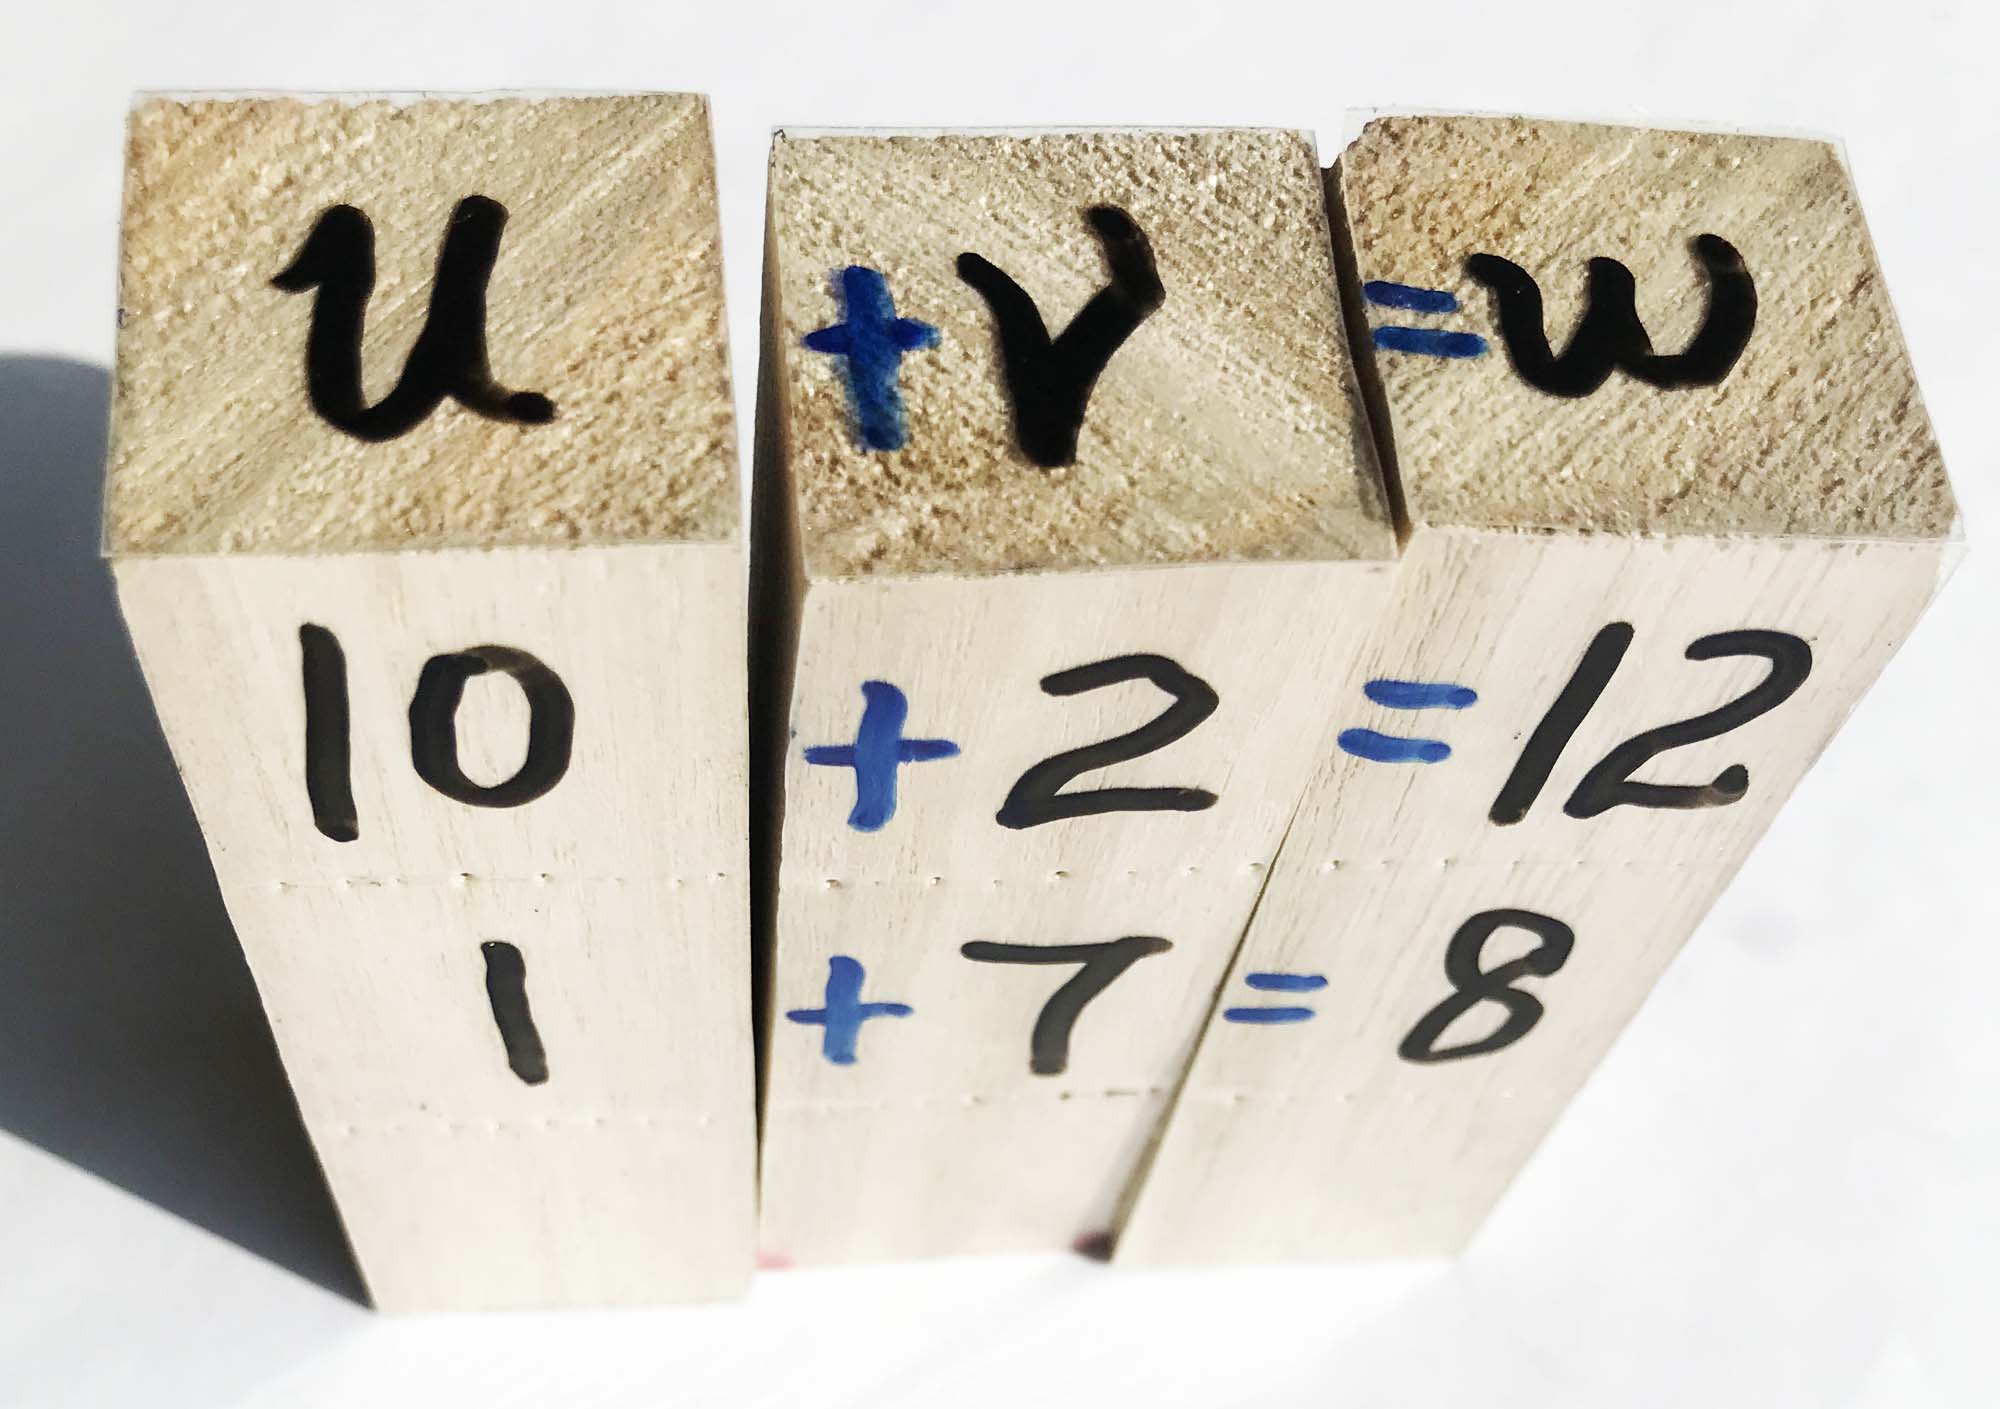 u + v = w
10 + 2 = 12
1 + 7 = 8